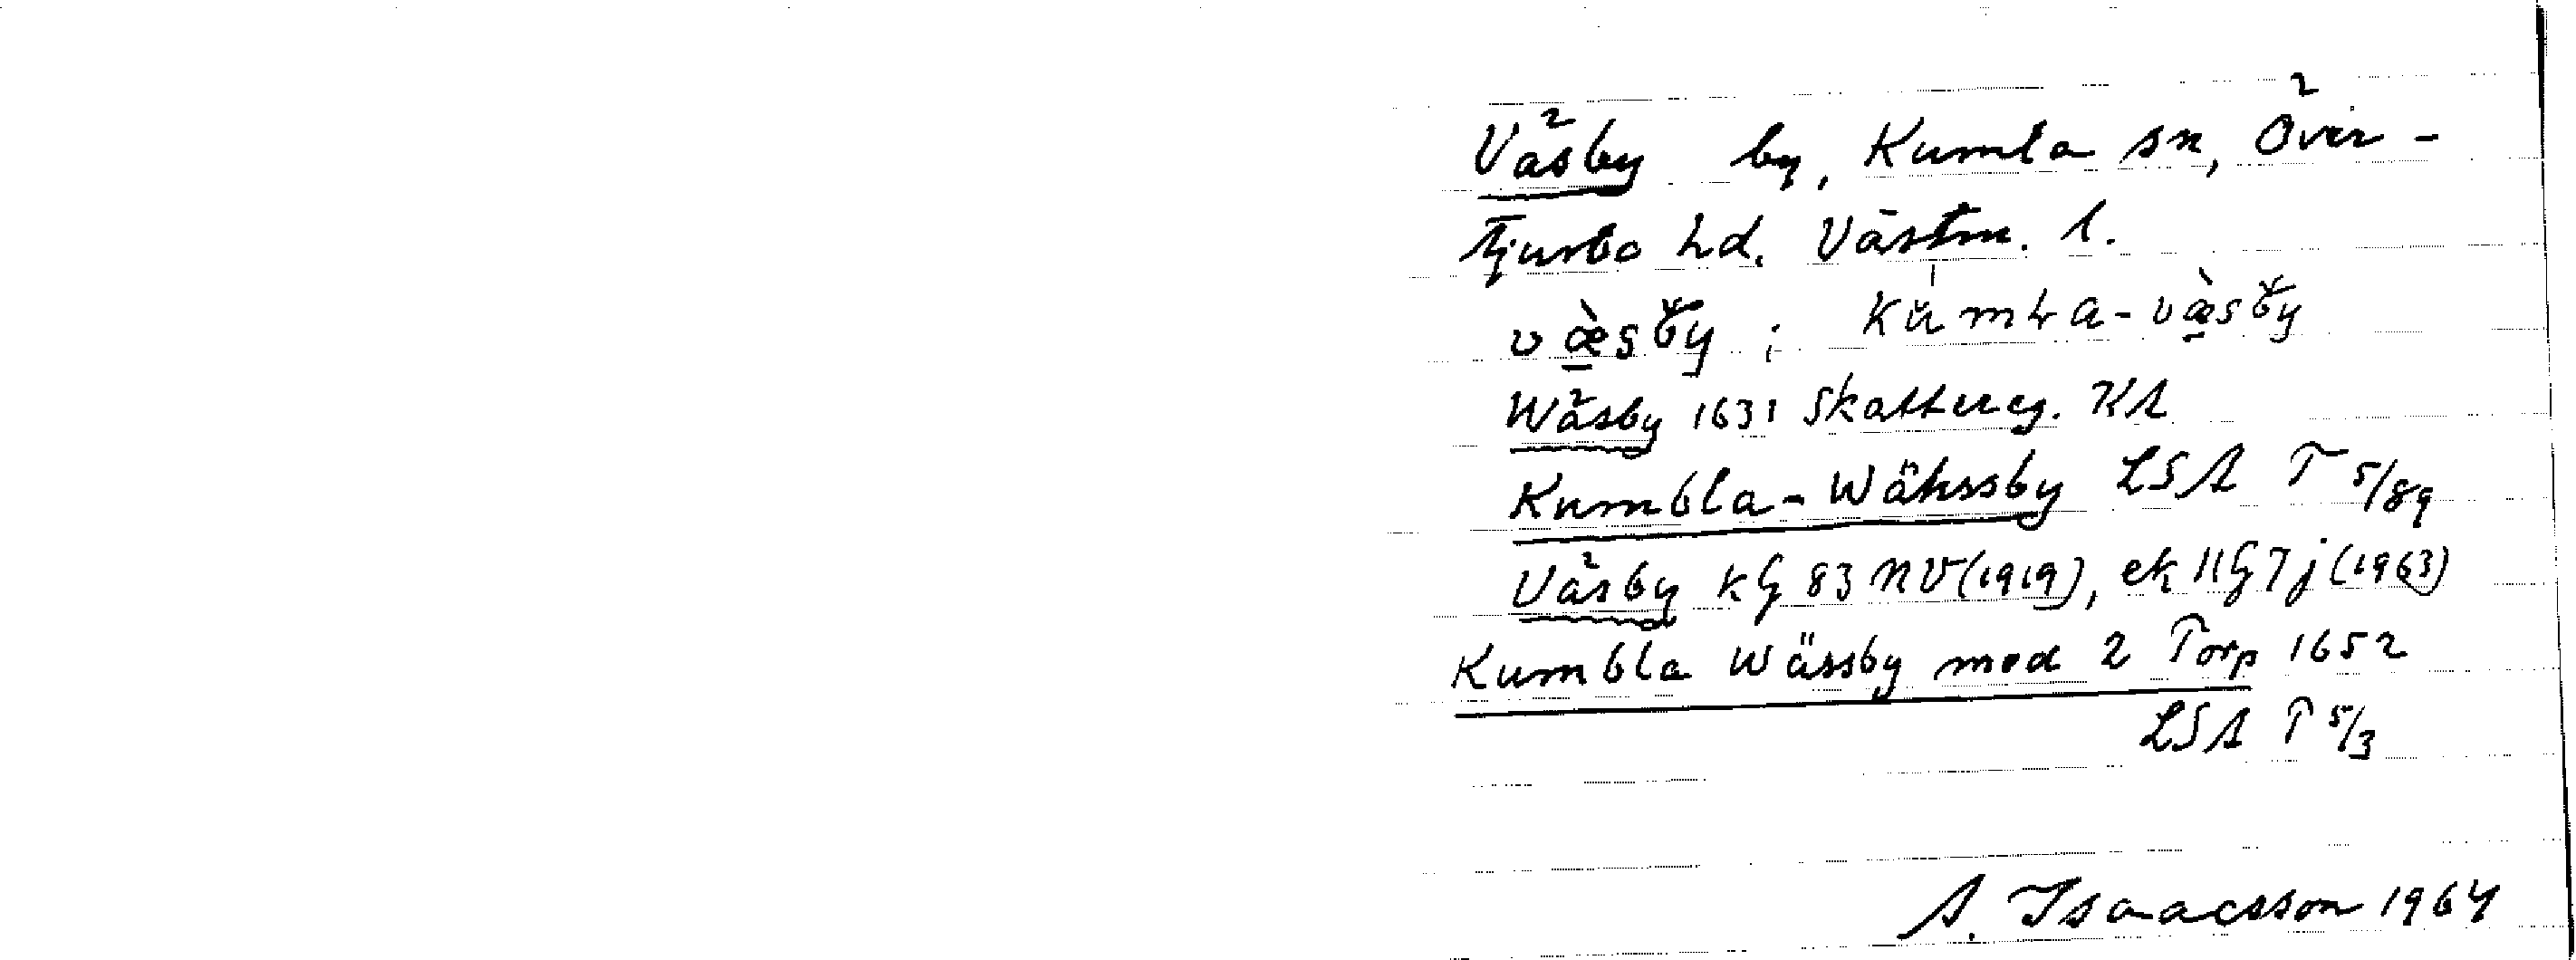 Väsby by, Kumla sn, Över-
Tjurbo hd. Västm. l.
væ̀sby̆ ; kùmla-væ̀sby̆
Wäsby 1631 Skattereg. KA
Kumbla-Wähssby LSA T 5/89
Väsby kG 83 NV (1919), ek 11G 7j (1963)
Kumbla Wässby med 2 Torp 1652
LSA T 5/3
A. Isaacsson 1964